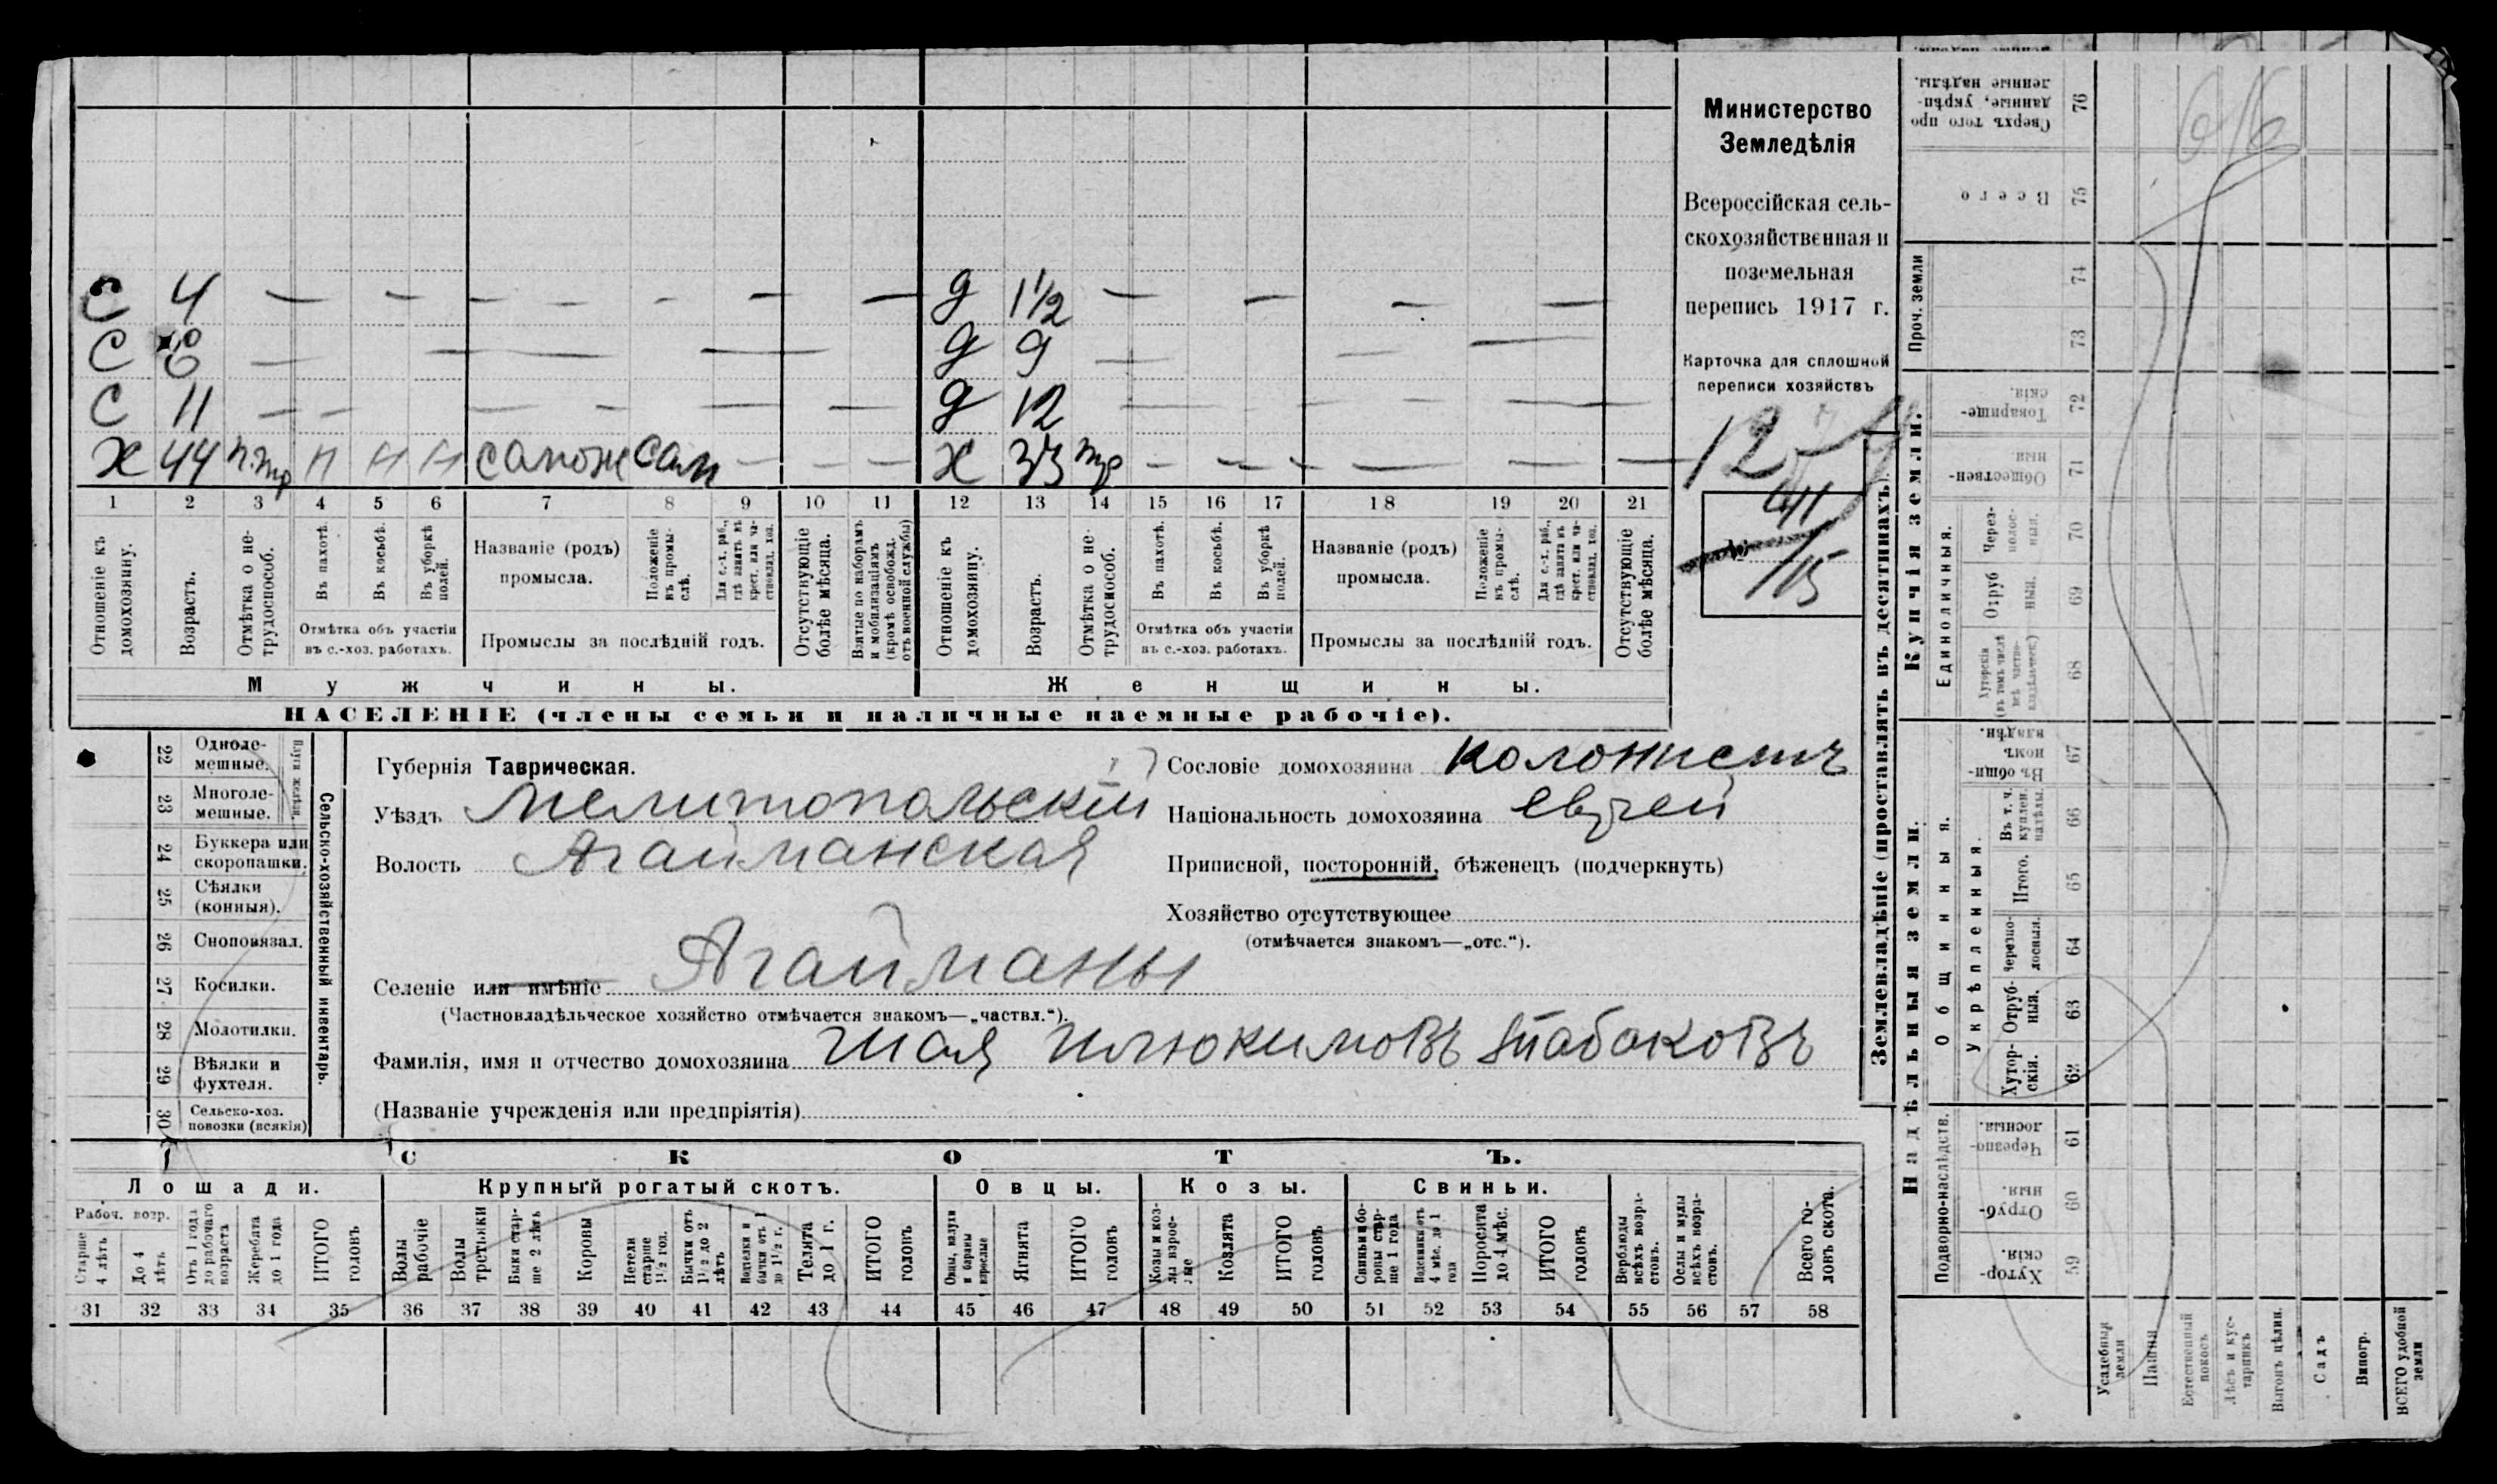 С 4 — — — — — — — д 1 1/2 — — — —
С 8 — — — — д 9 — — —
С 11 — — — — — — д 12 — — — —
Х 44 н.тр Н Н Н сапож сам — — — х 33 тр — — — — — —
1 2 3 4 5 6 7 8 9 10 11 12 13 14 15 16 17 18 19 20 21
Отношеніе къ домохозяину.
Возрастъ.
Отмѣтка о не-
трудоспособ.
Въ пахотѣ.
Въ косьбѣ.
Въ уборкѣ
полей.
Названіе (родъ)
промысла.
Положеніе
въ промы-
слѣ.
Для с.-х. раб.,
гдѣ занятъ въ
крест. или ча-
стновлад. хоз.
Отсутствующіе
болѣе мѣсяца.
Взятые по наборамъ
и мобилизаціямъ
(кромѣ освобожд.
отъ военной службы)
Отношеніе къ
домохозяину.
Возрастъ.
Отмѣтка о не-
трудоспособ.
Въ пахотѣ.
Въ косьбѣ.
Въ уборкѣ
полей.
Названіе (родъ)
промысла.
Положеніе
въ промы-
слѣ.
Для с.-х. раб.,
гдѣ занятъ въ
крест. или ча-
стновлад. хоз.
Отсутствующіе
болѣе мѣсяца.
Отмѣтка объ участіи
въ с.-хоз. работахъ.
Промыслы за послѣдній годъ.
Отмѣтка объ участіи
въ с.-хоз. работахъ.
Промыслы за послѣдній годъ.
Мужчины. Женщины.
НАСЕЛЕНІЕ (члены семьи и наличные наемные рабочіе).
Министерство
Земледѣлія
Всероссійская сель-
скохозяйственная и
поземельная
перепись 1917 г.
Карточка для сплошной
переписи хозяйствъ
12
№
15
22 Одноле-
мешные.
23 Многоле-
мешные.
24 Буккера или
скоропашки.
25 Сѣялки
(конныя).
26 Сноповязал.
27 Косилки.
28 Молотилки.
29 Вѣялки и
фухтеля.
30 Сельско-хоз.
повозки (всякія)
Сельско-хозяйственный инвентарь.
Губернія Таврическая.
Уѣздъ Мелитопольскій
Волость Агайманская
Селеніе или имѣніе Агайманы
(Частновладѣльческое хозяйство отмѣчается знакомъ—„частвл.“).
Фамилія, имя и отчество домохозяина Шая Табаковъ
(Названіе учрежденія или предпріятія)
Сословіе домохозяина колонистъ
Національность домохозяина еврей
Приписной, посторонній, бѣженецъ (подчеркнуть)
Хозяйство отсутствующее
(отмѣчается знакомъ—„отс.“).
СКОТЪ.
Лошади. Крупный рогатый скотъ. Овцы. Козы. Свиньи.
Рабоч. возр.
Старше
4 лѣтъ
До 4
лѣтъ
Отъ 1 года
до рабочаго
возраста
Жеребята
до 1 года
ИТОГО
головъ
Волы
рабочіе
Волы
третьяки
Быки стар-
ше 2 лѣтъ
Коровы
Нетели
старше
1 1/2 год.
Бычки отъ
1 1/2 до 2
лѣтъ
Водтелки и
бычки отъ 1
до 1 1/2 г.
Телята
до 1 г.
ИТОГО
головъ
Овцы, валухи
и бараны
взрослые
Ягнята
ИТОГО
головъ
Козы и коз-
лы взрос-
лые
Козлята
ИТОГО
головъ
Свиньи и бо-
ровы стар-
ше 1 года
Подсвинки отъ
4 мѣс. до 1
года
Поросята
до 4 мѣс.
ИТОГО
головъ
Верблюды
всѣхъ возра-
стовъ.
Ослы и мулы
всѣхъ возра-
стовъ.
Всего го-
ловъ скота.
31 32 33 34 35 36 37 38 39 40 41 42 43 44 45 46 47 48 49 50 51 52 53 54 55 56 57 58
Землевладѣніе (проставлять въ десятинахъ).
Купчія земли.
Надѣльныя земли.
Проч. земли
Единоличныя.
Общинныя.
Укрѣпленныя.
Подворно-наслѣдств.
Сверхъ того про
данные, укрѣп-
ленные надѣлы.
76
Всего
75
74
73
Товарище-
скія.
72
Обществен-
ныя.
71
Через-
полос-
ныя.
70
Отруб
ныя.
69
Хуторскія
(въ томъ числѣ
всѣ частно-
владѣльческ.)
68
Въ общи-
номъ
владѣн.
67
Въ т. ч.
куплен.
надѣлы.
66
Итого.
65
Черезпо-
лосныя.
64
Отруб-
ныя.
63
Хутор-
скія.
62
Черезпо-
лосныя.
61
Отруб-
ныя.
60
Хутор-
скія.
59
Усадебныя
земли
Пашня
Естественный
покосъ
Лѣсъ и кус-
тарникъ
Выгонъ цѣлин.
Садъ
Виногр.
ВСЕГО удобной
земли